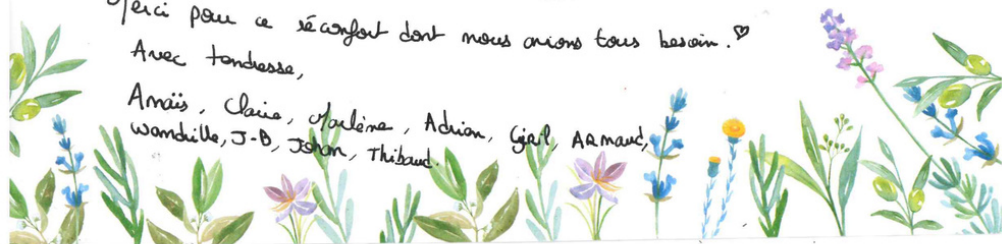 Merci pour ce réconfort dont nous avions tous besoin. ♡
Avec tendresse,
Anaïs, Claire, Marlène, Adrian, Cyril, ARMAUD,
Wandrille, J-B, Johan, Thibaud.